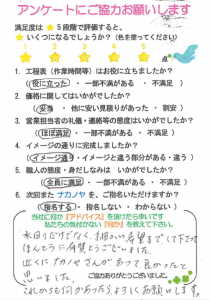 アンケートにご協力お願いします
満足度は★5段階で評価すると、
★いくつになるでしょうか?(色を塗ってください)
1 2 3 4 5
1. 工程表(作業時間等)はお役に立ちましたか?
(役に立った ・ 一部不満がある ・ 不満足)
2. 価格に関してはいかがでしたか?
(妥当 ・ 他に安い見積りがあった ・ 割安)
3. 営業担当者の礼儀・連絡等の態度はいかがでしたか?
(ほぼ満足 ・ 一部不満がある ・ 不満足)
4. イメージの通りに完成しましたか?
(イメージ通り ・ イメージと違う部分がある ・ 違う)
5. 職人の態度・身だしなみは いかがでしたか?
(全員に満足 ・ 一部不満がある ・ 不満足)
6. 次回また ナカノヤ を、ご指名いただけますか?
(指名する ・ 指名しない ・ わからない)
当社に何か『アドバイス』を頂けたら幸いです
私たちの気付かない『何か』を教えて下さい
水回りだけでなく、細かい希望まできいて下さって
ほんとうに有難うございました。
近くにナカノヤさんがあって良かったと
思いました。
ご協力ありがとうございました。
これからも何かあったらよろしくお願いします。